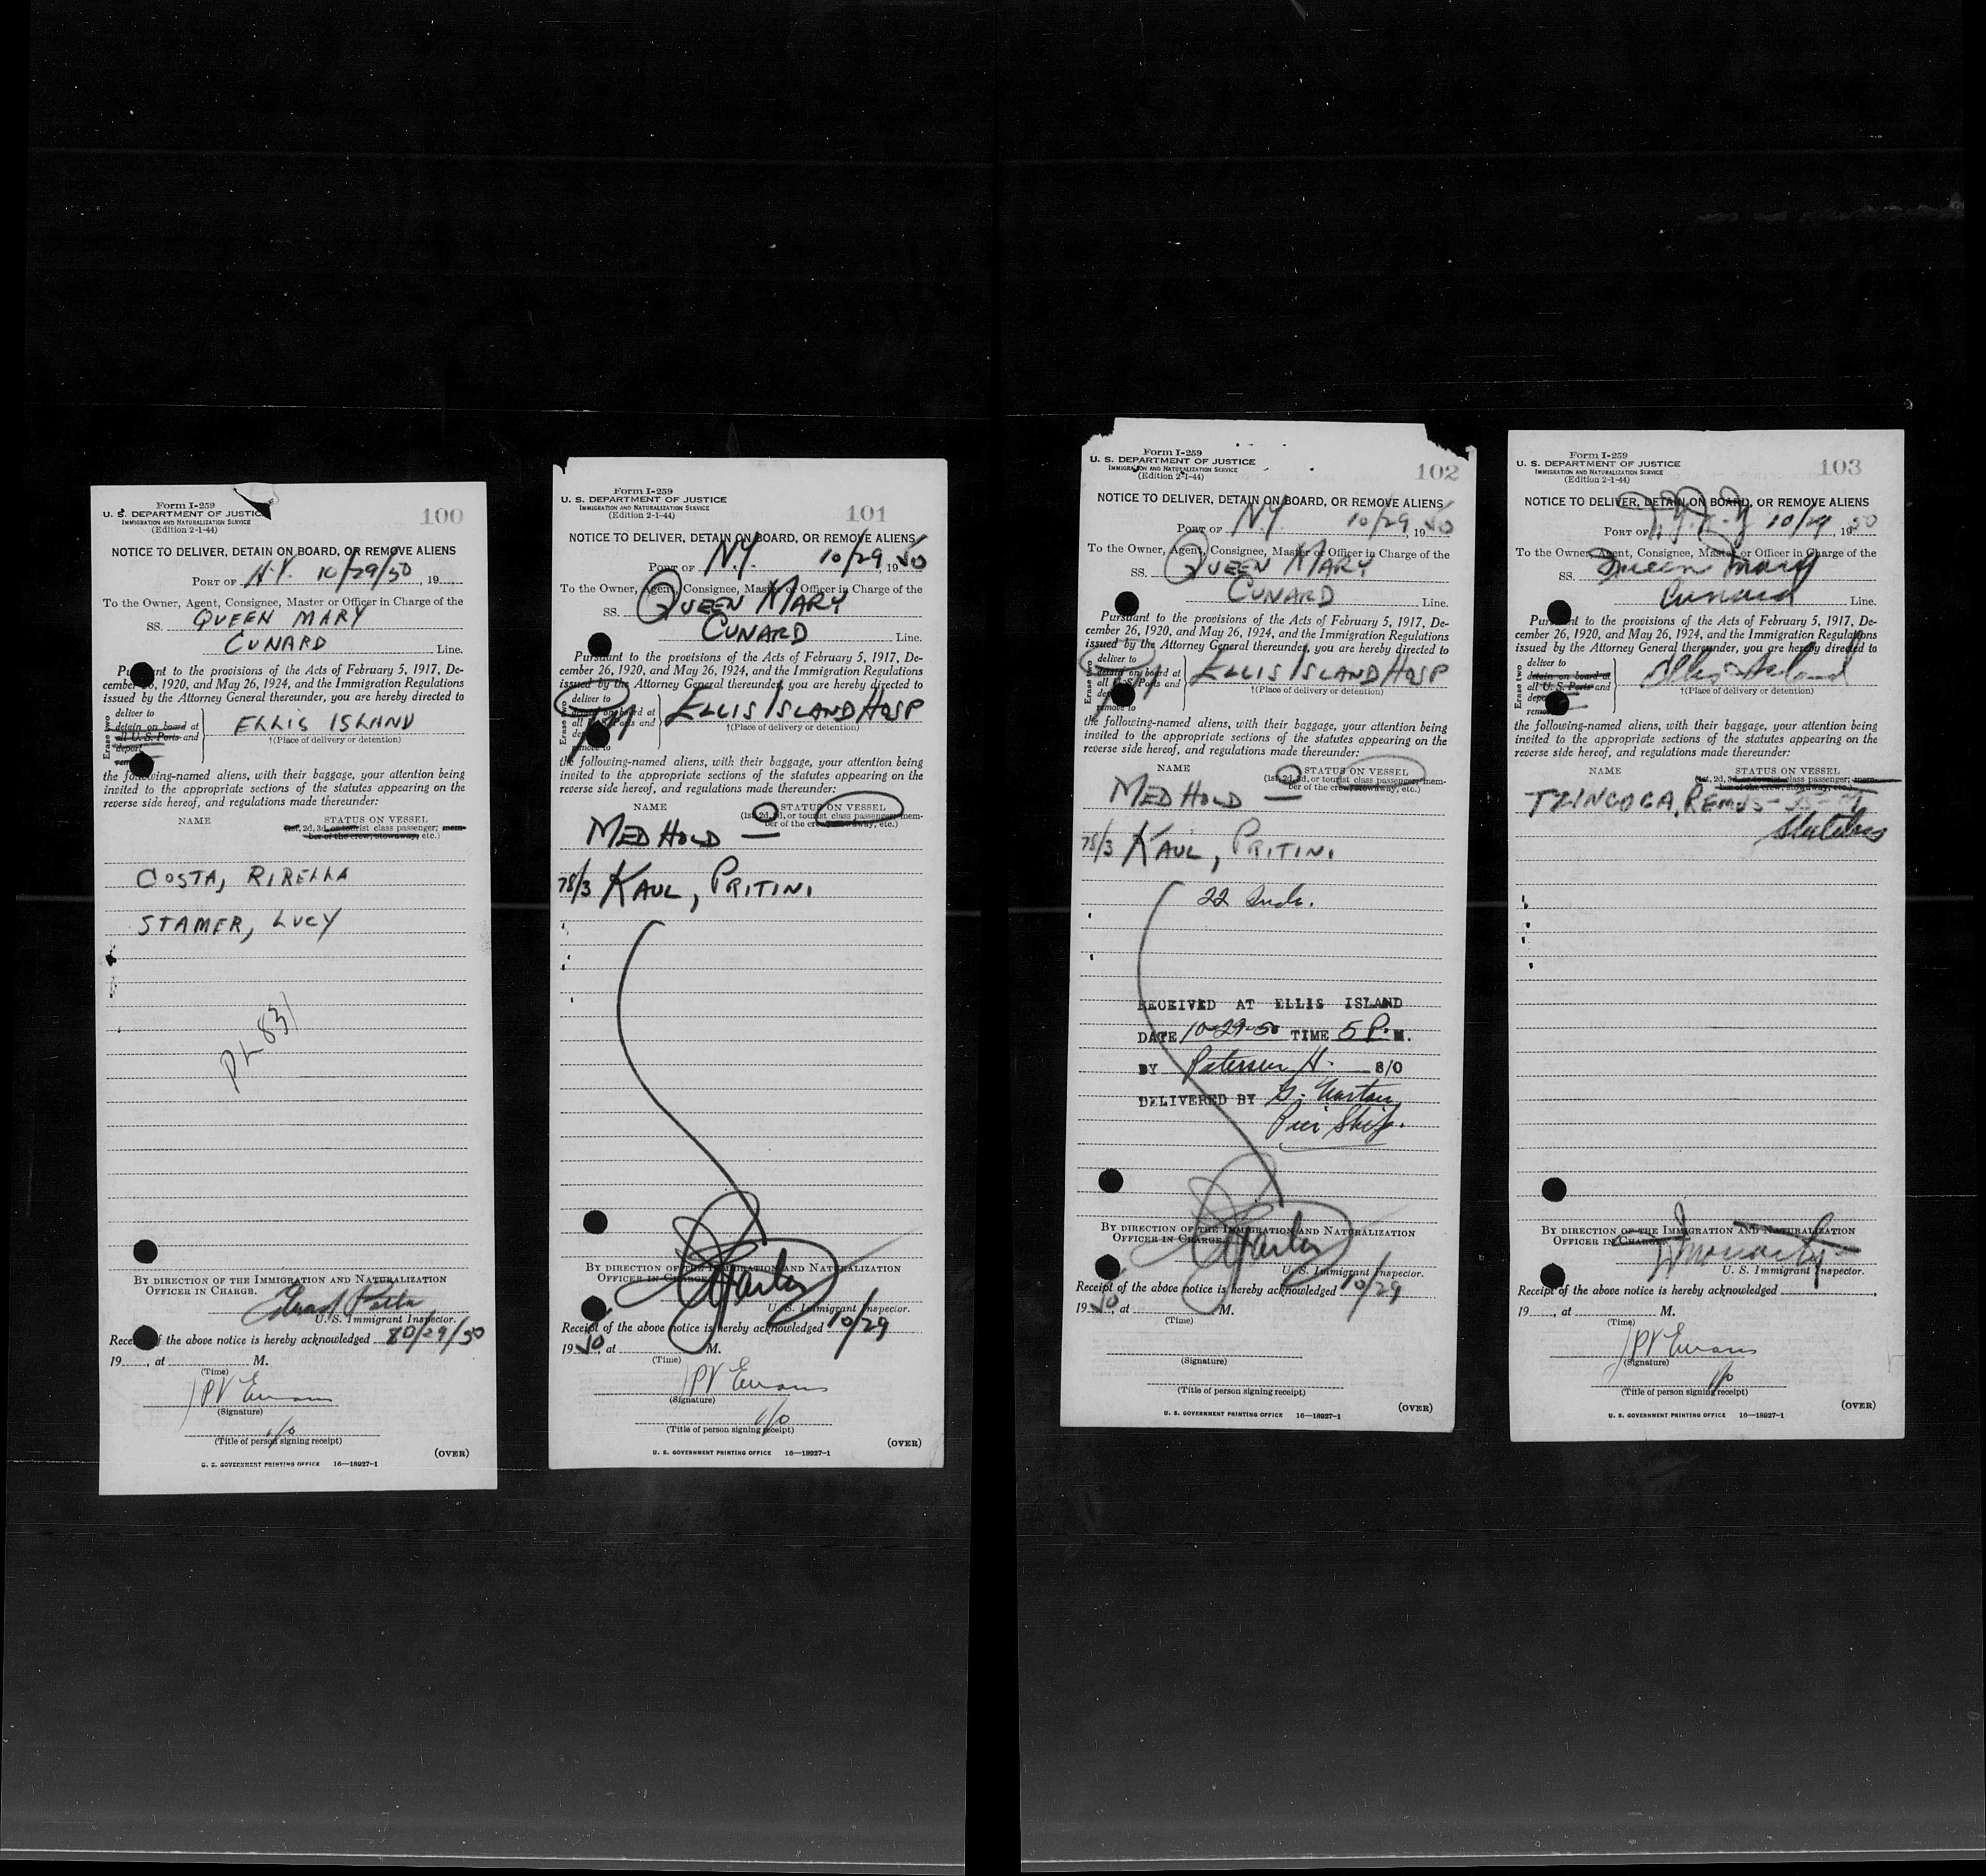 Form I-259
U. S. DEPARTMENT OF JUSTICE
IMMIGRATION AND NATURALIZATION SERVICE
(Edition 2-1-44)
100
NOTICE TO DELIVER, DETAIN ON BOARD, OR REMOVE ALIENS
PORT OF N.Y. 10/29/50, 19
To the Owner, Agent, Consignee, Master or Officer in Charge of the
SS. QUEEN MARY
CUNARD Line.
Pursuant to the provisions of the Acts of February 5, 1917, De-
cember 26, 1920, and May 26, 1924, and the Immigration Regulations
issued by the Attorney General thereunder, you are hereby directed to
Erase two
deliver to
detain on board at
all U. S. Ports and
deport
remove to
ELLIS ISLAND
†(Place of delivery or detention)
the following-named aliens, with their baggage, your attention being
invited to the appropriate sections of the statutes appearing on the
reverse side hereof, and regulations made thereunder:
NAME STATUS ON VESSEL
(1st, 2d, 3d, or tourist class passenger; mem-
ber of the crew, stowaway, etc.)
COSTA, RIRELLA
STAMER, LUCY
PL 831
BY DIRECTION OF THE IMMIGRATION AND NATURALIZATION
OFFICER IN CHARGE.
U. S. Immigrant Inspector.
Receipt of the above notice is hereby acknowledged 10/29/50
19 , at M.
(Time)
PV Evans
(Signature)
(Title of person signing receipt)
(OVER)
U. S. GOVERNMENT PRINTING OFFICE 16—18927-1
Form I-259
U. S. DEPARTMENT OF JUSTICE
IMMIGRATION AND NATURALIZATION SERVICE
(Edition 2-1-44)
101
NOTICE TO DELIVER, DETAIN ON BOARD, OR REMOVE ALIENS
PORT OF N.Y. 10/29, 1950
To the Owner, Agent, Consignee, Master or Officer in Charge of the
SS. QUEEN MARY
CUNARD Line.
Pursuant to the provisions of the Acts of February 5, 1917, De-
cember 26, 1920, and May 26, 1924, and the Immigration Regulations
issued by the Attorney General thereunder, you are hereby directed to
Erase two
deliver to
detain on board at
all U. S. Ports and
deport
remove to
ELLIS ISLAND HOSP
†(Place of delivery or detention)
the following-named aliens, with their baggage, your attention being
invited to the appropriate sections of the statutes appearing on the
reverse side hereof, and regulations made thereunder:
NAME STATUS ON VESSEL
(1st, 2d, 3d, or tourist class passenger; mem-
ber of the crew, stowaway, etc.)
MED HOLD
78/3 KAUL, PRITINI
BY DIRECTION OF THE IMMIGRATION AND NATURALIZATION
OFFICER IN CHARGE.
U. S. Immigrant Inspector.
Receipt of the above notice is hereby acknowledged 10/29
1950, at M.
(Time)
PV Evans
(Signature)
(Title of person signing receipt)
(OVER)
U. S. GOVERNMENT PRINTING OFFICE 16—18927-1
Form I-259
U. S. DEPARTMENT OF JUSTICE
IMMIGRATION AND NATURALIZATION SERVICE
(Edition 2-1-44)
102
NOTICE TO DELIVER, DETAIN ON BOARD, OR REMOVE ALIENS
PORT OF N.Y. 10/29, 1950
To the Owner, Agent, Consignee, Master or Officer in Charge of the
SS. QUEEN MARY
CUNARD Line.
Pursuant to the provisions of the Acts of February 5, 1917, De-
cember 26, 1920, and May 26, 1924, and the Immigration Regulations
issued by the Attorney General thereunder, you are hereby directed to
Erase two
deliver to
detain on board at
all U. S. Ports and
deport
remove to
ELLIS ISLAND HOSP
†(Place of delivery or detention)
the following-named aliens, with their baggage, your attention being
invited to the appropriate sections of the statutes appearing on the
reverse side hereof, and regulations made thereunder:
NAME STATUS ON VESSEL
(1st, 2d, 3d, or tourist class passenger; mem-
ber of the crew, stowaway, etc.)
MED HOLD
78/3 KAUL, PRITINI
22
RECEIVED AT ELLIS ISLAND
DATE 10-29-50 TIME 5 P. M.
BY Peterson H. S/O
DELIVERED BY G.
Pier
BY DIRECTION OF THE IMMIGRATION AND NATURALIZATION
OFFICER IN CHARGE.
U. S. Immigrant Inspector.
Receipt of the above notice is hereby acknowledged 10/29
1950, at M.
(Time)
(Signature)
(Title of person signing receipt)
(OVER)
U. S. GOVERNMENT PRINTING OFFICE 16—18927-1
Form I-259
U. S. DEPARTMENT OF JUSTICE
IMMIGRATION AND NATURALIZATION SERVICE
(Edition 2-1-44)
103
NOTICE TO DELIVER, DETAIN ON BOARD, OR REMOVE ALIENS
PORT OF 10/29, 1950
To the Owner, Agent, Consignee, Master or Officer in Charge of the
SS. Queen Mary
Cunard Line.
Pursuant to the provisions of the Acts of February 5, 1917, De-
cember 26, 1920, and May 26, 1924, and the Immigration Regulations
issued by the Attorney General thereunder, you are hereby directed to
Erase two
deliver to
detain on board at
all U. S. Ports and
deport
remove to
Ellis Island
†(Place of delivery or detention)
the following-named aliens, with their baggage, your attention being
invited to the appropriate sections of the statutes appearing on the
reverse side hereof, and regulations made thereunder:
NAME STATUS ON VESSEL
(1st, 2d, 3d, or tourist class passenger; mem-
ber of the crew, stowaway, etc.)
TZINCOCA, REMUS
Stateless
BY DIRECTION OF THE IMMIGRATION AND NATURALIZATION
OFFICER IN CHARGE.
U. S. Immigrant Inspector.
Receipt of the above notice is hereby acknowledged
19 , at M.
(Time)
PV Evans
(Signature)
(Title of person signing receipt)
(OVER)
U. S. GOVERNMENT PRINTING OFFICE 16—18927-1